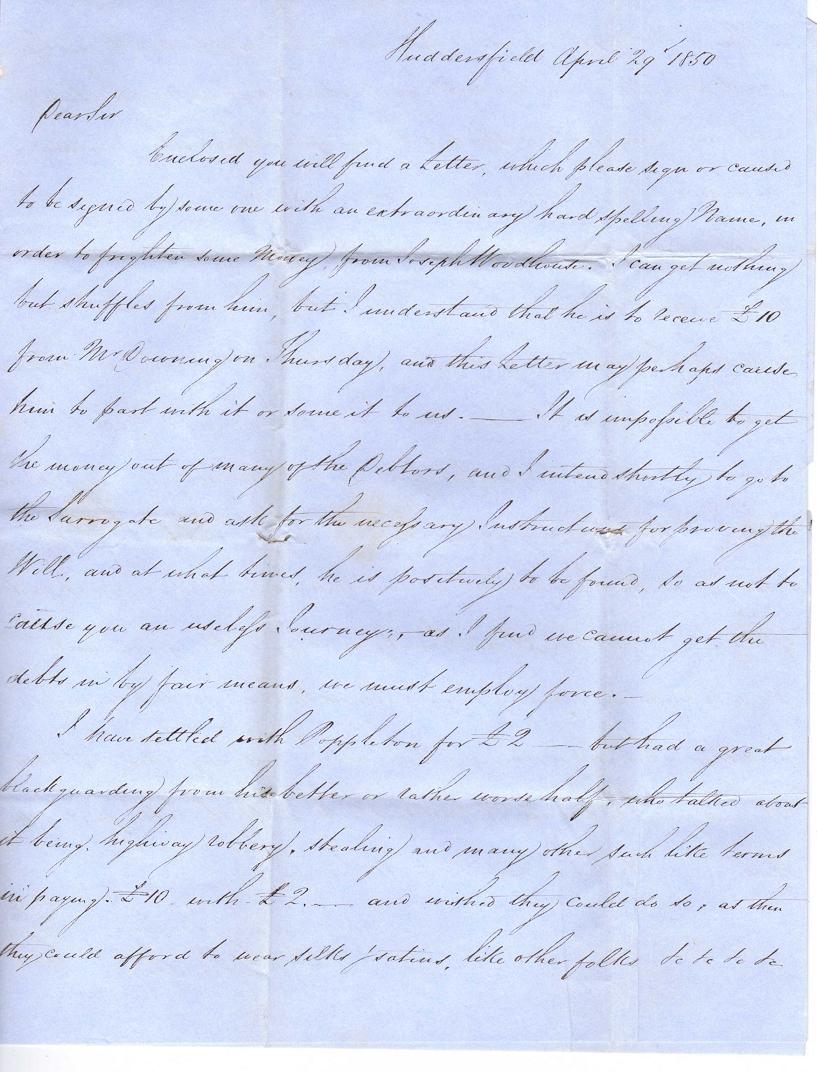 Huddersfield April 29' 1850
Dear Sir
Enclosed you will find a Letter, which please sign or caused
to be signed by some one with an extraordinary hard spelling Name, in
order to frighten some Money, from Joseph Woodhouse. I can get nothing
but shuffles from him, but I understand that he is to receive £10
from Mr Downing on Thursday, and this Letter may perhaps cause
him to part with it or some it to us. — It is impossible to get
the money out of many of the Debtors, and I intend shortly to go to
the Surrogate and ask for the necessary Instructions for proving the
Will, and at what times, he is positively to be found, so as not to
cause you an useless Journey, as I find we cannot get the
debts in by fair means, we must employ force. —
I have settled with Poppleton for £2 — but had a great
blackguarding from his better or rather worse half, who talked about
it being, highway robbery, stealing and many other such like terms
in paying. £10 with £2. — and wished they could do so, as then
they could afford to wear silks & satins, like other folks &c &c &c &c